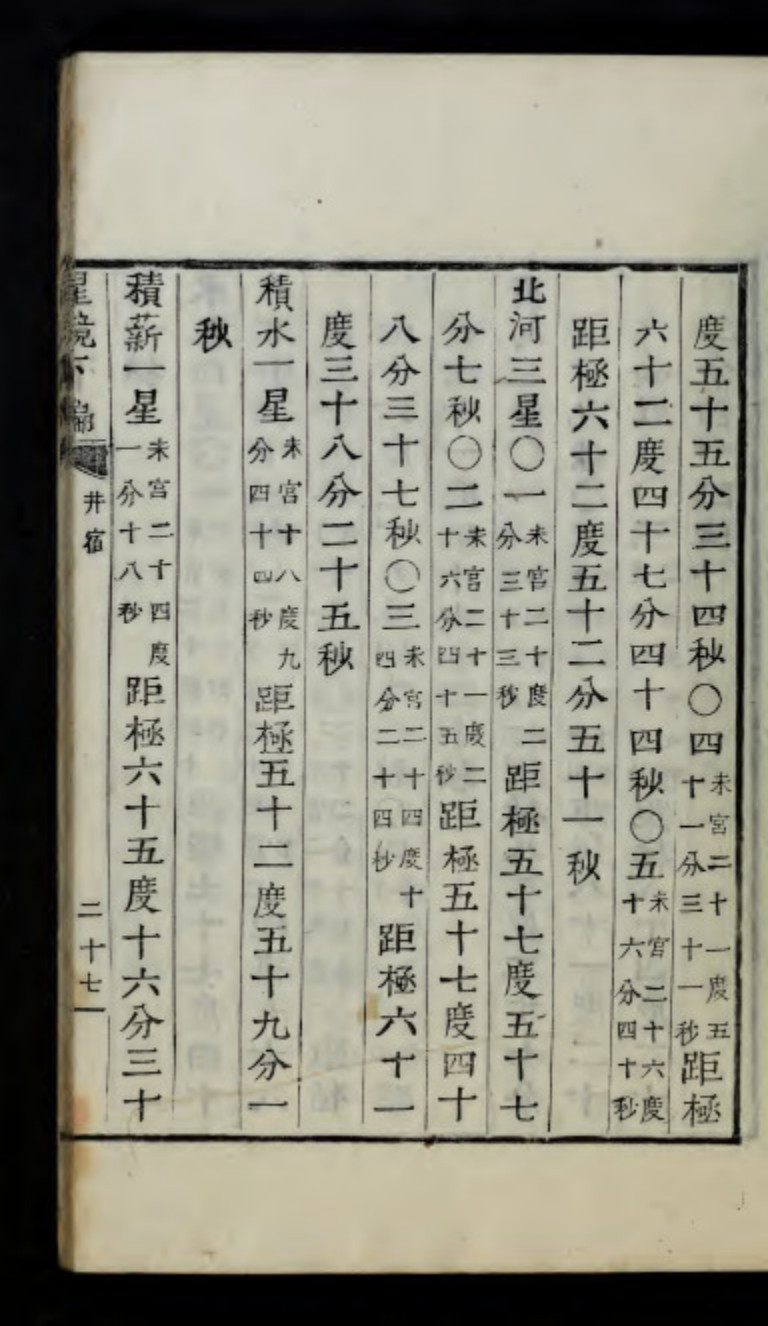 度五十五分三十四秒〇四未宮二十一度五十一分三十一秒距極
六十二度四十七分四十四秒〇五未宮二十六度十六分四十秒
距極六十二度五十二分五十一秒
北河三星〇一未宮二十度二分三十三秒距極五十七度五十七
分七秒〇二未宮二十一度二十六分四十五秒距極五十七度四十
八分三十七秒〇三未宮二十四度十四分二十四秒距極六十一
度三十八分二十五秒
積水一星未宮十八度九分四十四秒距極五十二度五十九分一
秒
積薪一星未宮二十四度一分十八秒距極六十五度十六分三十
星鏡下編
井宿
二十七